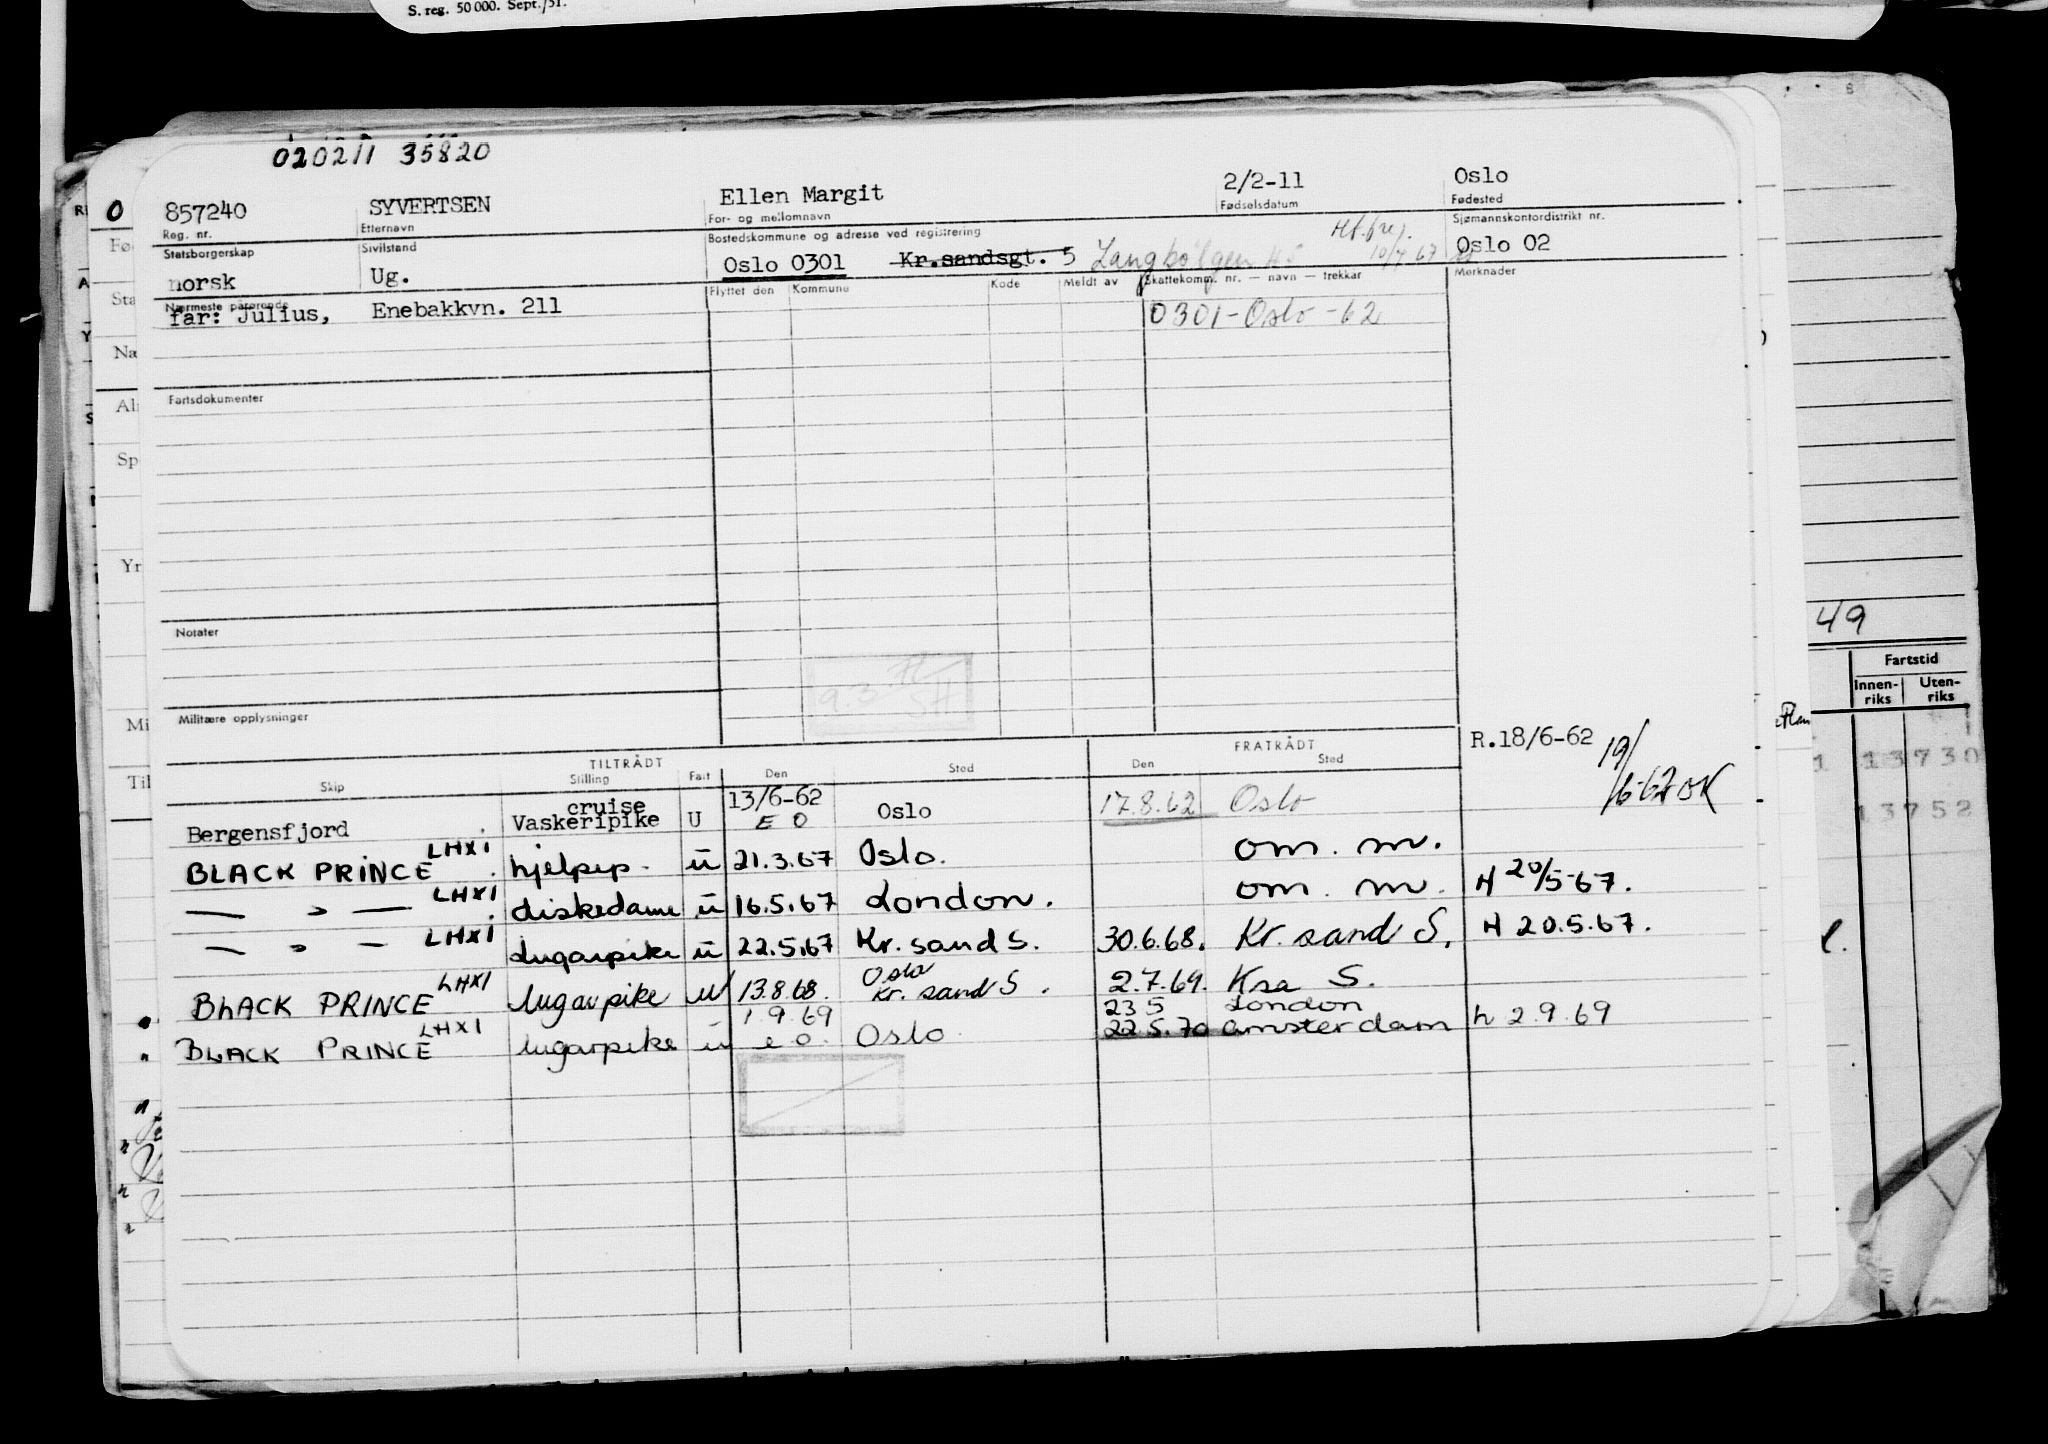 S. reg. 50 000. Sept./51.
020211 35820
857240 SYVERTSEN Ellen Margit 2/2-11 Oslo
Reg. nr. Etternavn For- og mellomnavn Fødselsdatum Fødested
Statsborgerskap Sivilstand Bostedskommune og adresse ved registrering Sjømannskontordistrikt nr.
norsk Ug. Oslo 0301 Kr.sandsgt. 5 Langbølgen 10/7 67 Oslo 02
Nærmeste pårørende Flyttet den Kommune Kode Meldt av Skattekomm. nr. — navn — trekkår Merknader
far: Julius, Enebakkvn. 211 0301-Oslo-62
Fartsdokumenter
Notater
Militære opplysninger
TILTRÅDT FRATRÅDT R.18/6-62 19/6-62 OK
Skip Stilling Fart Den Sted Den Sted
Bergensfjord cruise Vaskeripike U 13/6-62 E O Oslo 17.8.62 Oslo
BLACK PRINCE LHXI hjelpep. u 21.3.67 Oslo. om. m.
— " — LHXI diskedame u 16.5.67 London. om. m. H 20/5-67.
— " — LHXI Lugarpike u 22.5.67 Kr. sand S. 30.6.68. Kr. sand S. H 20.5.67.
BLACK PRINCE LHXI lugarpike u 13.8.68. Oslo Kr. sand S. 2.7.69. Krs S.
BLACK PRINCE LHXI lugarpike u 1.9.69 e o. Oslo 23 5 London
22.5.70 Amsterdam h 2.9.69
49
Fartstid
Innen-riks Uten-riks
13730
13752